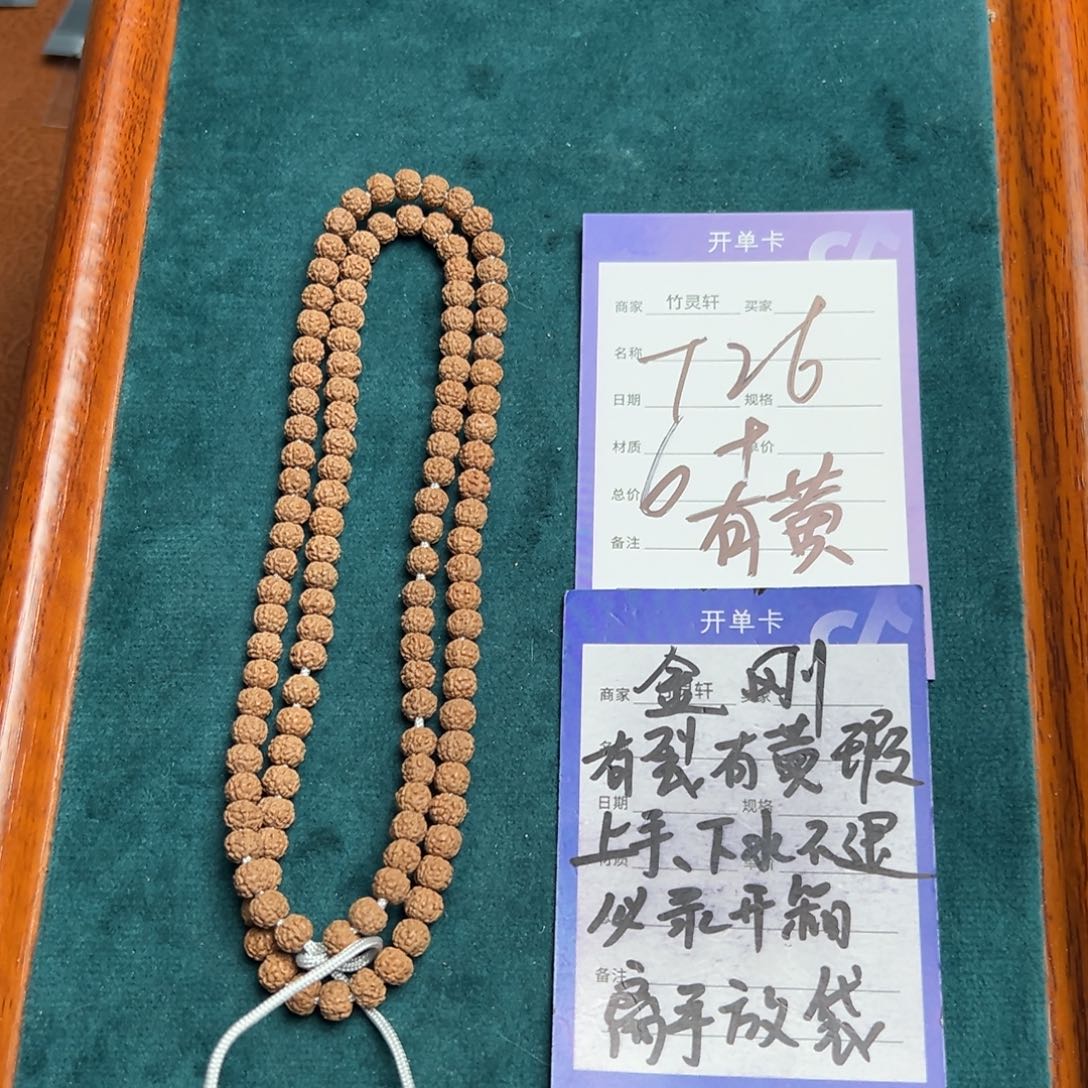 开单卡
商家 竹灵轩 买家
名称
T26
日期 规格
材质 单价
6+
总价
有黄
备注
开单卡
商家 轩
金刚
有裂有黄瑕
日期 规格
上手、下水不退
必录开箱
备注
离手放袋